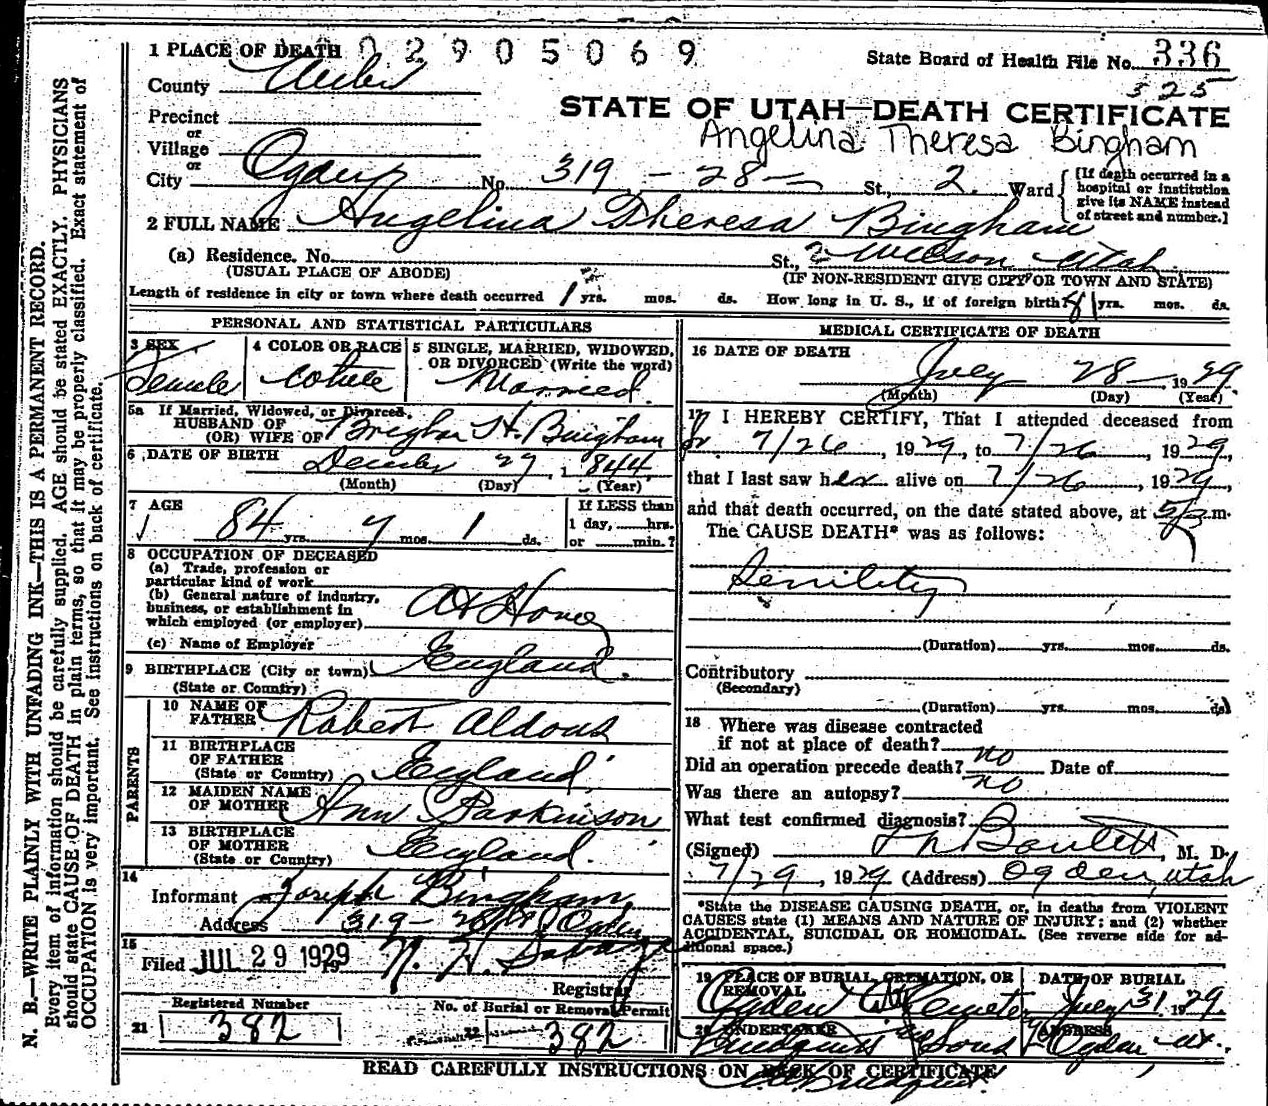 1 PLACE OF DEATH 02905069
State Board of Health File No. 336
County Weber
525
STATE OF UTAH—DEATH CERTIFICATE
Precinct
Angelina Theresa Bingham
or
Village
or
City Ogden No. 319 - 28 - St., 2. Ward
[If death occurred in a
hospital or institution
give its NAME instead
of street and number.]
2 FULL NAME Angelina Theresa Bingham
(a) Residence. No. St., Wilson Utah
(USUAL PLACE OF ABODE) (IF NON-RESIDENT GIVE CITY OR TOWN AND STATE)
Length of residence in city or town where death occurred 1 yrs. mos. ds. How long in U. S., if of foreign birth? 61 yrs. mos. ds.
PERSONAL AND STATISTICAL PARTICULARS
3 SEX 4 COLOR OR RACE 5 SINGLE, MARRIED, WIDOWED,
OR DIVORCED (Write the word)
Female white Married.
5a If Married, Widowed, or Divorced,
HUSBAND OF
(OR) WIFE OF Brigham H. Bingham
6 DATE OF BIRTH December 27, 1844
(Month) (Day) (Year)
7 AGE
84 yrs. 7 mos. 1 ds.
If LESS than
1 day, hrs.
or min.?
8 OCCUPATION OF DECEASED
(a) Trade, profession or
particular kind of work
(b) General nature of industry,
business, or establishment in
which employed (or employer) At Home
(c) Name of Employer
9 BIRTHPLACE (City or town) England.
(State or Country)
PARENTS
10 NAME OF
FATHER Robert Aldous
11 BIRTHPLACE
OF FATHER
(State or Country) England
12 MAIDEN NAME
OF MOTHER Ann Parkinson
13 BIRTHPLACE
OF MOTHER
(State or Country) England.
14
Informant Joseph Bingham,
Address 319 - 28 St Ogden
15
Filed JUL 29 1929
Registrar
Registered Number
No. of Burial or Removal Permit
21 382
22 382
MEDICAL CERTIFICATE OF DEATH
16 DATE OF DEATH
July 28 - , 1929.
(Month) (Day) (Year)
17 I HEREBY CERTIFY, That I attended deceased from
7/26, 1929, to 7/26, 1929,
that I last saw her alive on 7/26, 1929,
and that death occurred, on the date stated above, at m.
The CAUSE DEATH* was as follows:
Senility
(Duration) yrs. mos. ds.
Contributory
(Secondary)
(Duration) yrs. mos. ds.
18 Where was disease contracted
if not at place of death?
Did an operation precede death? no Date of
Was there an autopsy? no
What test confirmed diagnosis?
(Signed) Bartlett, M. D.
7/29, 1929 (Address) Ogden, Utah
*State the DISEASE CAUSING DEATH, or, in deaths from VIOLENT
CAUSES state (1) MEANS AND NATURE OF INJURY; and (2) whether
ACCIDENTAL, SUICIDAL OR HOMICIDAL. (See reverse side for ad-
ditional space.)
19 PLACE OF BURIAL, CREMATION, OR
REMOVAL
DATE OF BURIAL
Ogden City Cemetery July 31, 1929.
20 UNDERTAKER ADDRESS
Lindquist & Sons Ogden Ut.
READ CAREFULLY INSTRUCTIONS ON BACK OF CERTIFICATE
N. B.—WRITE PLAINLY WITH UNFADING INK—THIS IS A PERMANENT RECORD.
Every item of information should be carefully supplied. AGE should be stated EXACTLY. PHYSICIANS
should state CAUSE OF DEATH in plain terms, so that it may be properly classified. Exact statement of
OCCUPATION is very important. See instructions on back of certificate.